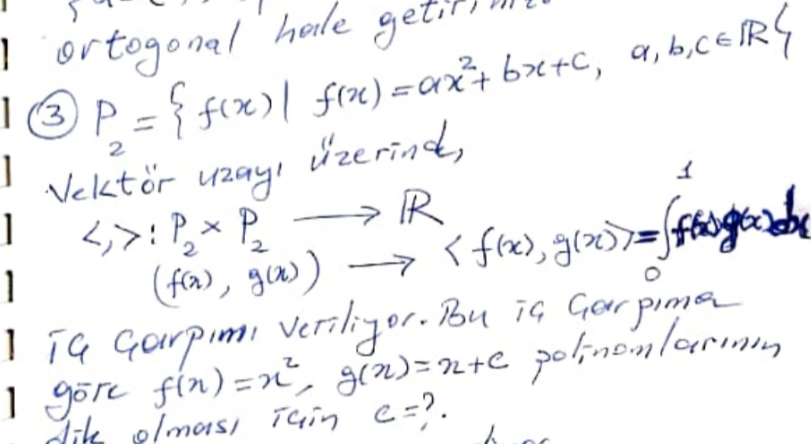 ortogonal hale getiriniz.
③ P₂ = { f(x) | f(x) = ax² + bx + c, a, b, c ∈ ℝ }
Vektör uzayı üzerind,
<,>: P₂ × P₂ → ℝ
(f(x), g(x)) → <f(x), g(x)> = ∫₀¹ f(x)g(x)dx
İç Çarpımı veriliyor. Bu iç Çarpıma
göre f(x) = x², g(x) = x + c polinomlarının
dik olması için c = ?.